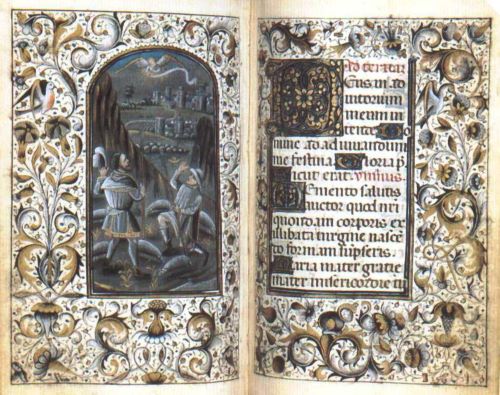 Ad tertiam
Deus in ad
iutorium
meum in
tende Do
mine ad adiuuandum
me festina Gloria p
Sicut erat ymnus
Memento salutis
auctor quod nri
quondam corporis ex
illibata uirgine nasce
do formam sumpseris
Maria mater gratie
mater misericordie tu